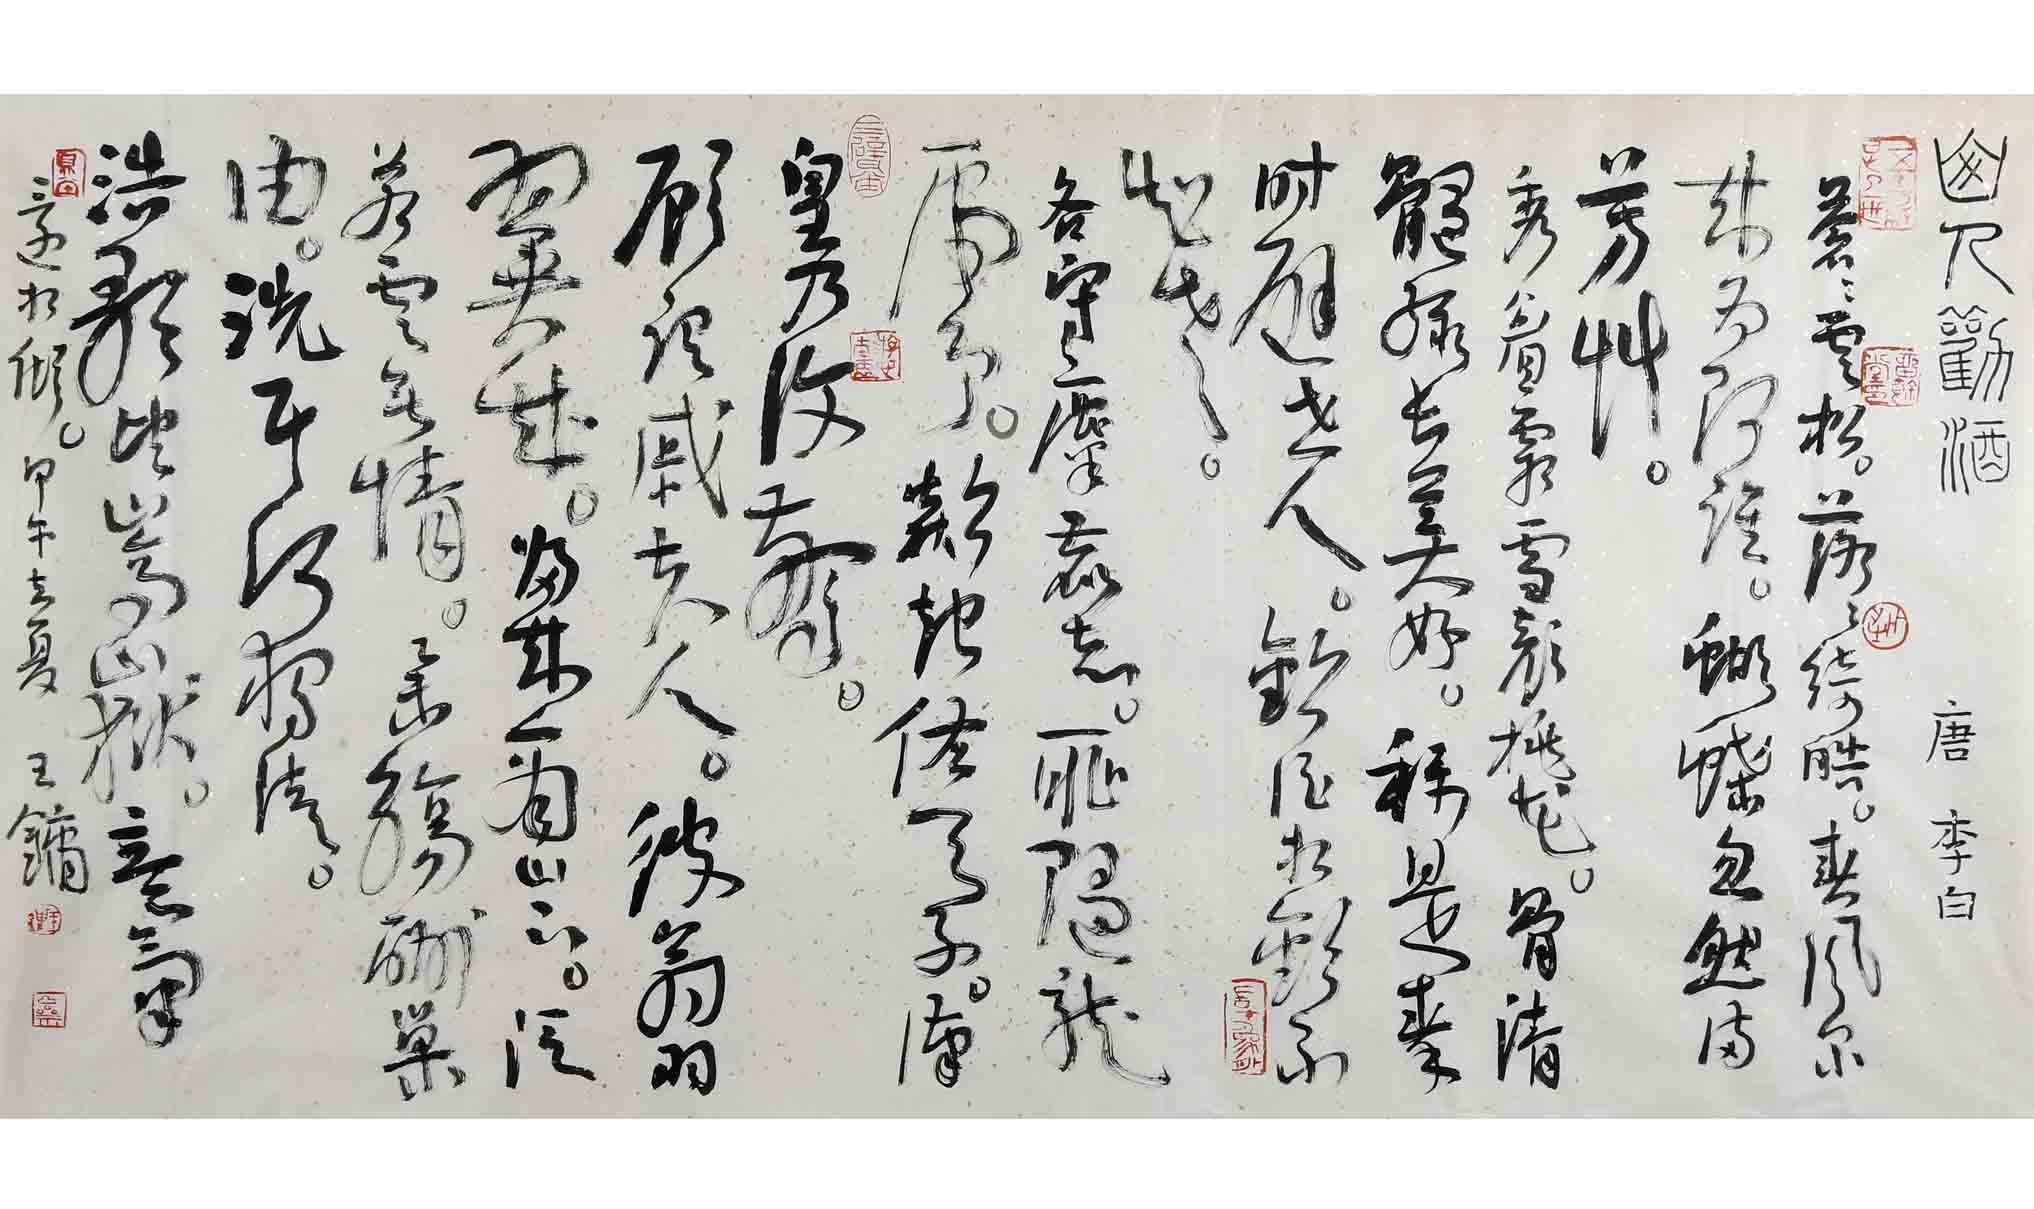 山人勸酒 唐 李白
蒼〻雲松。落〻綺皓。春風尔
來為阿誰。蝴蝶忽然滿
芳艸。
秀眉霜雪顏桃花。骨清
髓綠長美好。稱是秦
時避世人。勸酒相歡不
知老。
各守麋鹿志。耻隨龍
虎争。欻起佐太子。漢
皇乃復驚。
顧謂戚夫人。彼翁羽
翼成。歸來商山下。泛
若雲無情。舉觴酹巢
由。洗耳何獨清。
浩歌望嵩嶽。意氣
還相傾。甲午立夏 王鏞